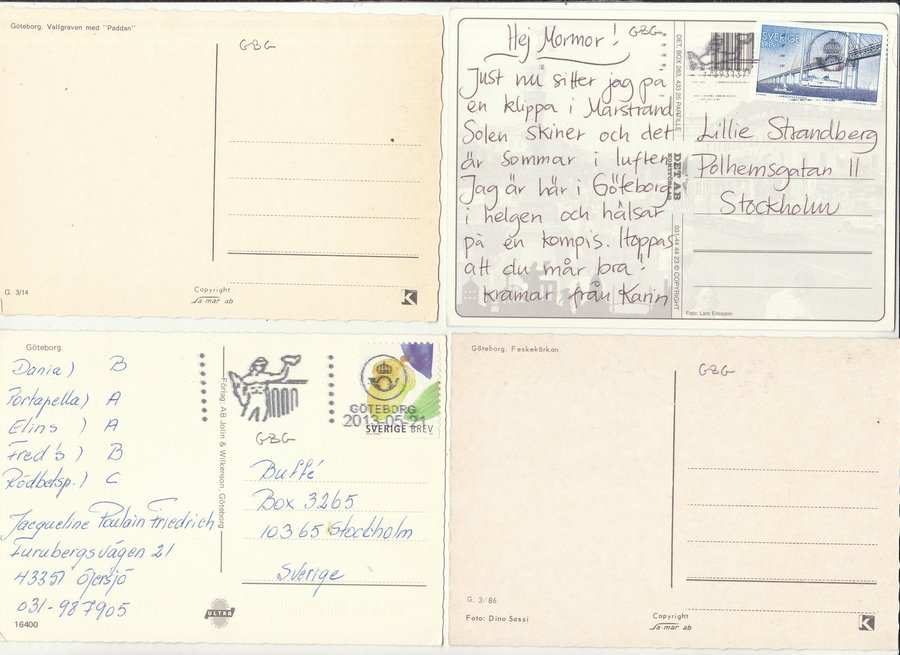 Göteborg. Vallgraven med "Paddan"
GBG
G. 3/14
Copyright
Sa-mar ab
K
Hej Mormor!
Just nu sitter jag på
en klippa i Marstrand
Solen skiner och det
är sommar i luften
Jag är här i Göteborg
i helgen och hälsar
på en kompis. Hoppas
att du mår bra!
Kramar från Karin
GBG
DET. BOX 263, 433 25 PARTILLE
DET AB
031-44 44 23 © COPYRIGHT
SVERIGE
BREV
Lillie Strandberg
Polhemsgatan 11
Stockholm
Foto: Lars Ericsson
Göteborg.
Dania) B
Portapella) A
Elins) A
Fred's) B
Rödbetsp.) C
Jacqueline Paulain Friedrich
Furubergsvägen 21
43351 Öjersjö
031-987905
16400
Förlag: AB Jolin & Wilkenson, Göteborg
ULTRA
GÖTEBORG
2013-05-21
SVERIGE BREV
GBG
Buffé
Box 3265
10365 Stockholm
Sverige
Göteborg. Feskekörkan.
GBG
G. 3/86
Foto: Dino Sassi
Copyright
Sa-mar ab
K